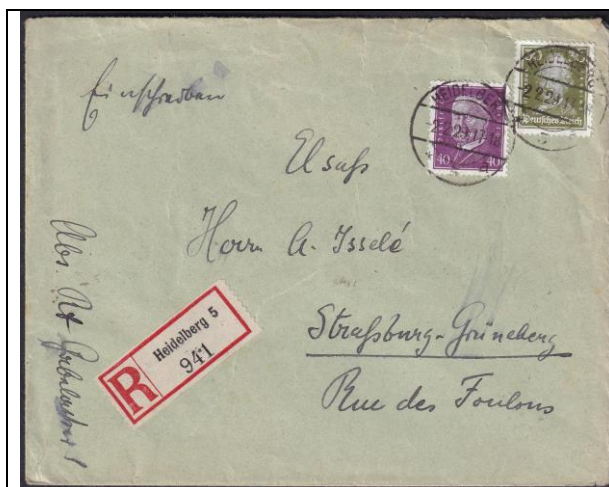 Einschreiben
HEIDELBERG
2.2.29.17
Deutsches Reich
HEIDELBERG
29.17
40 40
Elsaß
Herrn A. Isselé
Straßburg-Grüneberg
Rue des Foulons
R Heidelberg 5
941
Abs.